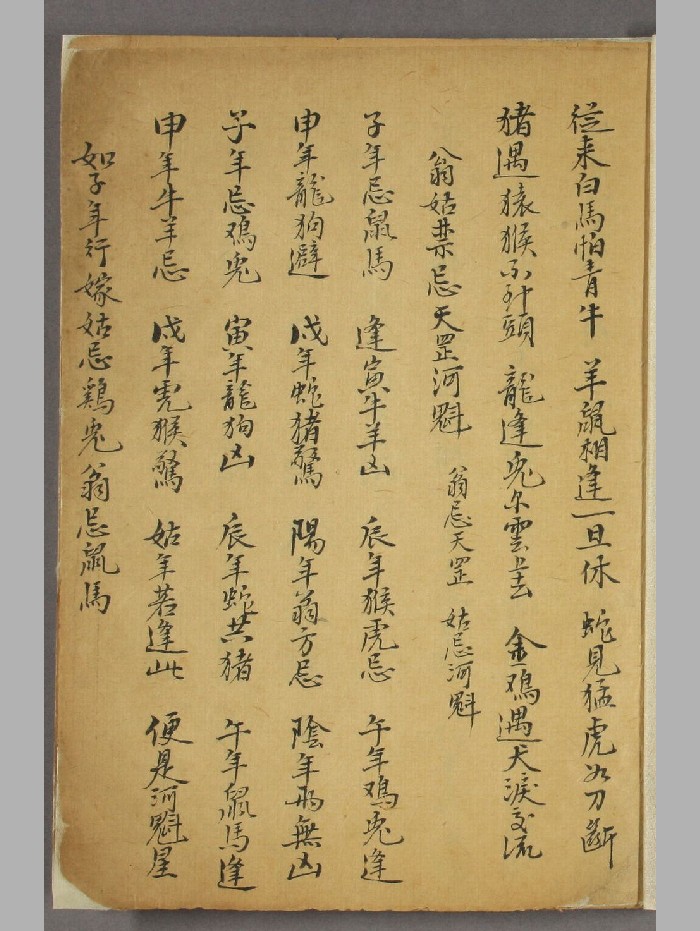 從来白馬怕青牛 羊鼠相逢一旦休 蛇見猛虎如刀斷
猪遇猿猴不到頭 龍逢兎尔雲上去 金鷄遇犬淚交流
翁姑禁忌天罡河魁 翁忌天罡 姑忌河魁
子年忌鼠馬 逢寅牛羊凶 辰年猴虎忌 午年鳮兎逢
申年龍狗避 戍年蛇猪驚 陽年翁方忌 陰年兩無凶
子年忌鳮兎 寅年龍狗凶 辰年蛇共猪 午年鼠馬逢
申年牛羊忌 戍年虎猴驚 姑年若逢此 便是河魁星
如子年行嫁姑忌鷄兎翁忌鼠馬